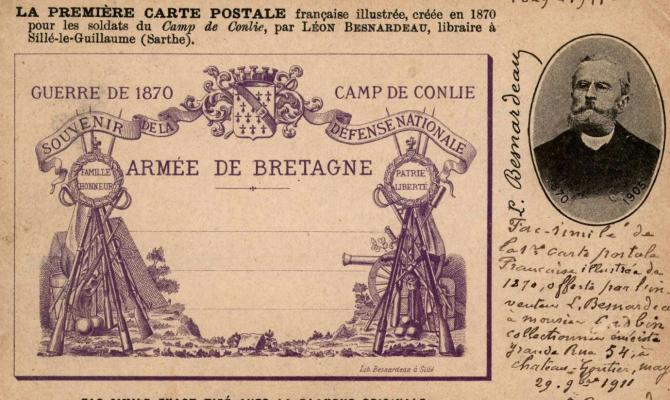 LA PREMIÈRE CARTE POSTALE française illustrée, créée en 1870
pour les soldats du Camp de Conlie, par LÉON BESNARDEAU, libraire à
Sillé-le-Guillaume (Sarthe).
GUERRE DE 1870
CAMP DE CONLIE
SOUVENIR DE LA DÉFENSE NATIONALE
ARMÉE DE BRETAGNE
FAMILLE
HONNEUR
PATRIE
LIBERTÉ
Lib. Besnardeau à Sillé
L. Besnardeau
1870 1903
Fac-similé de
la 1re carte postale
Française illustrée de
1870, offerte par l'in-
venteur L. Besnardeau
à monsieur
collectionneur
grande Rue 54, à
Chateau-Gontier, may
29. 9bre 1911